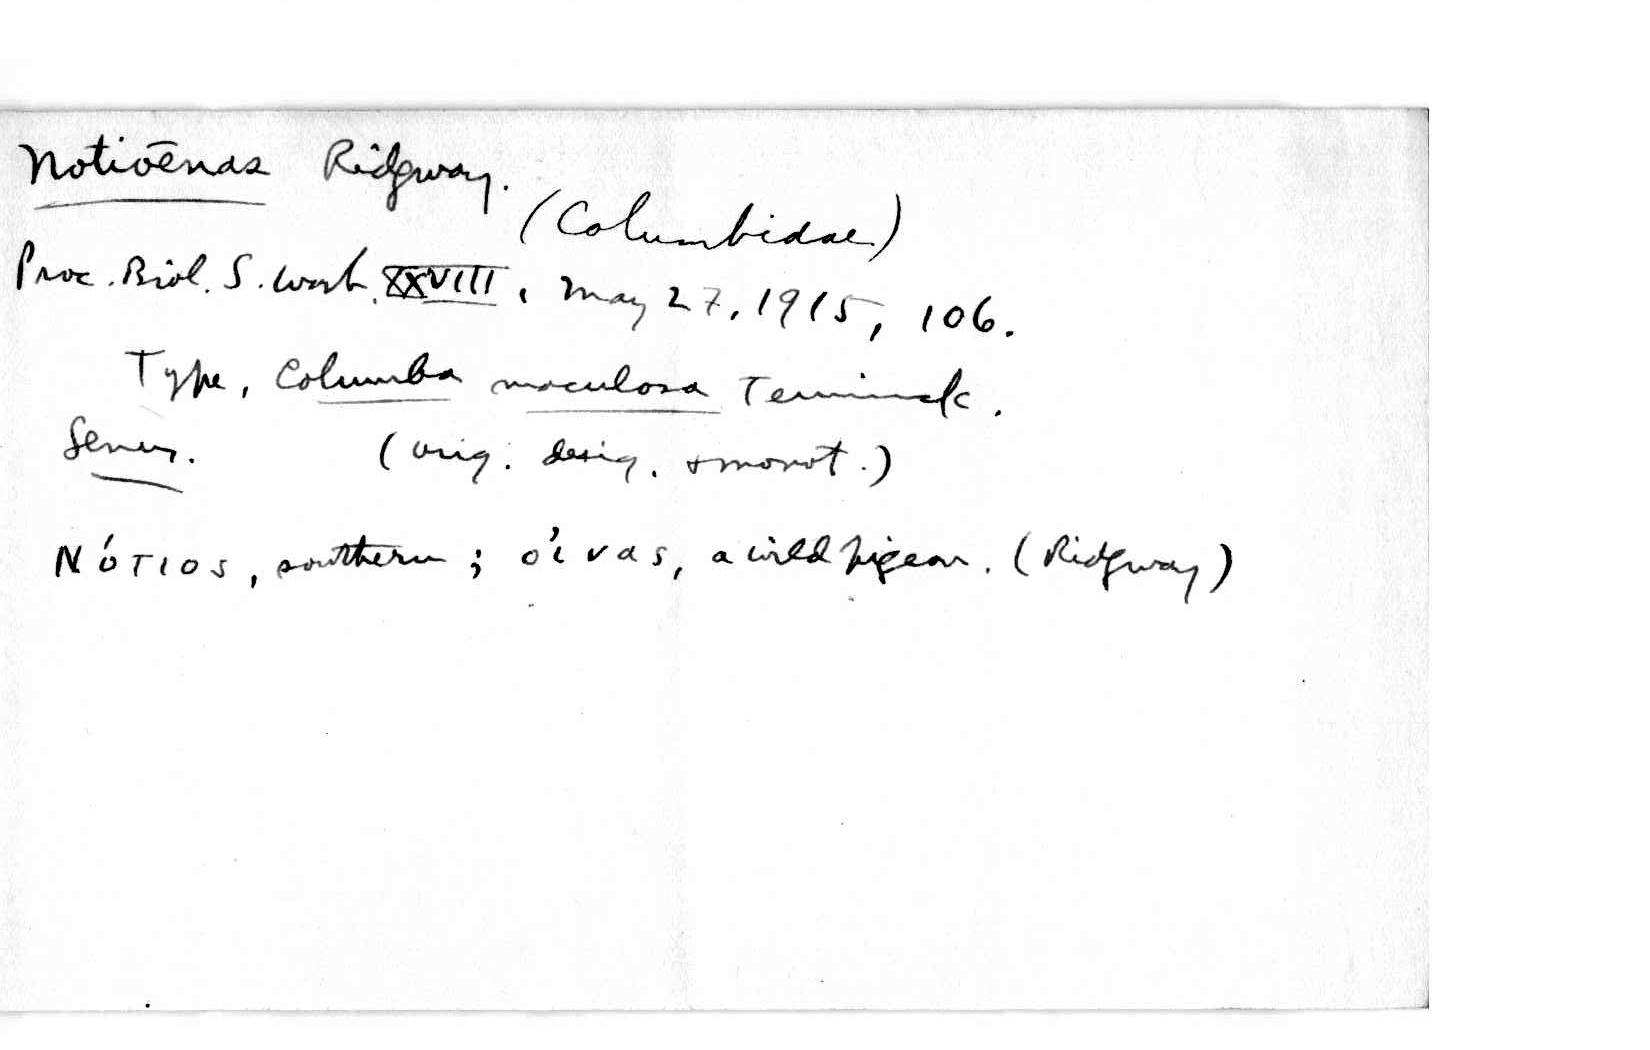 Notioēnas Ridgway.
(Columbidae)
Proc. Biol. S. Wash. XXVIII, May 27, 1915, 106.
Type, Columba maculosa Temminck.
Genus. (orig. desig. + monot.)
Νότιος, southern; οἰνας, a wild pigeon. (Ridgway)